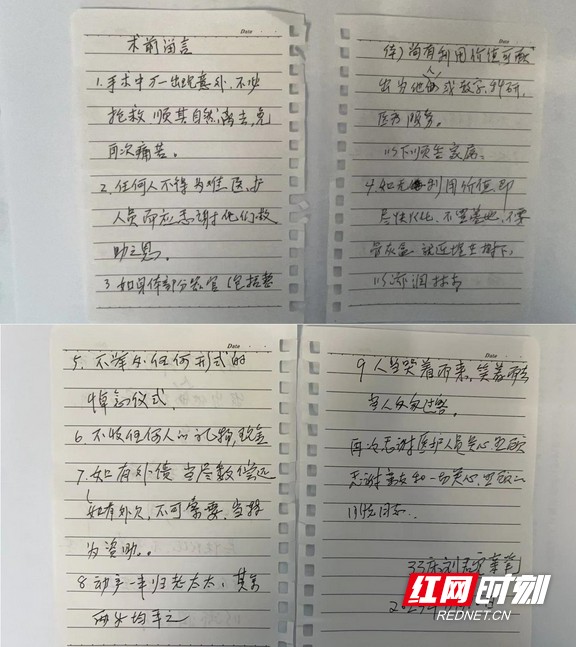 Date
术前留言
1. 手术中万一出现意外,不必
抢救 顺其自然离去,免
再次痛苦。
2. 任何人不得为难医、护
人员 而应感谢他们救
助之恩。
3 如身体部分器官(包括整
Date
体)尚有利用价值可献
出为他人或教学、科研、
医疗服务。
以下顺告家属:
4 如无利用价值,即
尽快火化、不置墓地、不要
骨灰盒 就近埋于树下,
以滋润林木
Date
5. 不举办任何形式的
悼念仪式.
6. 不收任何人的礼物,现金
7. 如有外债 当尽数偿还
如有外欠,不可索要,当转
为资助。
8. 动产一半归老太太;其余
两女均平之
Date
9 人当哭着而来,笑着而去
再次感谢医护人员关心
感谢亲友的一切关心
33床刘
红网时刻
REDNET.CN